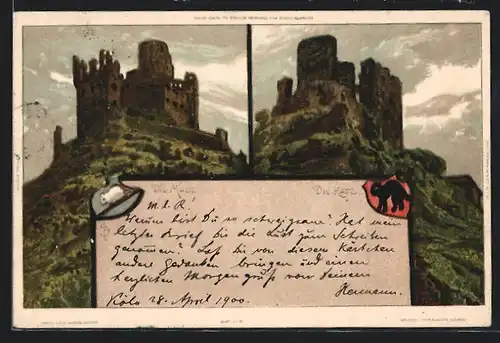 Die Maus
Die Katz
M. l. R!
Warum bist Du so schweigsam? Hat mein
letzter Brief dir die Lust zum Schreiben
genommen? Laß dir von diesem Kärtchen
andere Gedanken bringen und einen
herzlichen Morgengruß von Deinem
Hermann.
Köln 28. April 1900.